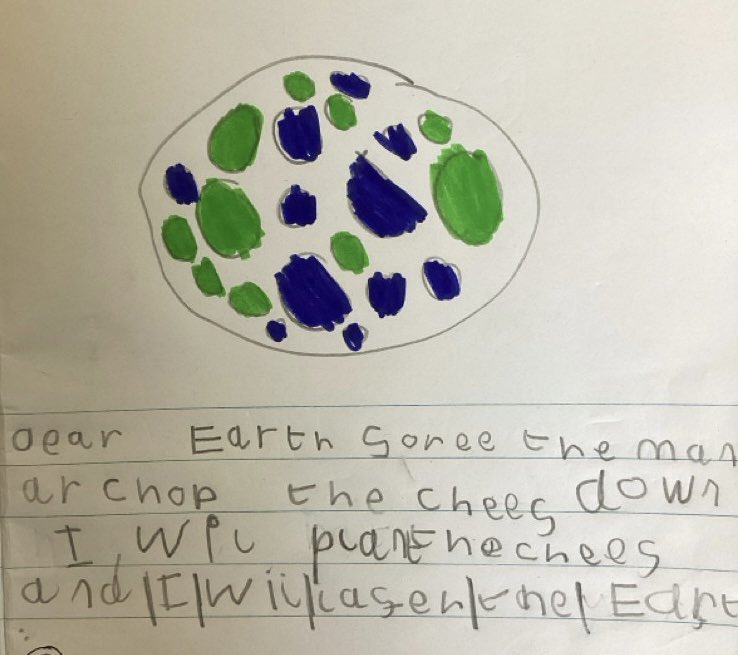 Dear Earth Soree the man
ar chop the chees down
I wil plant the chees
and I wil casen the Eart